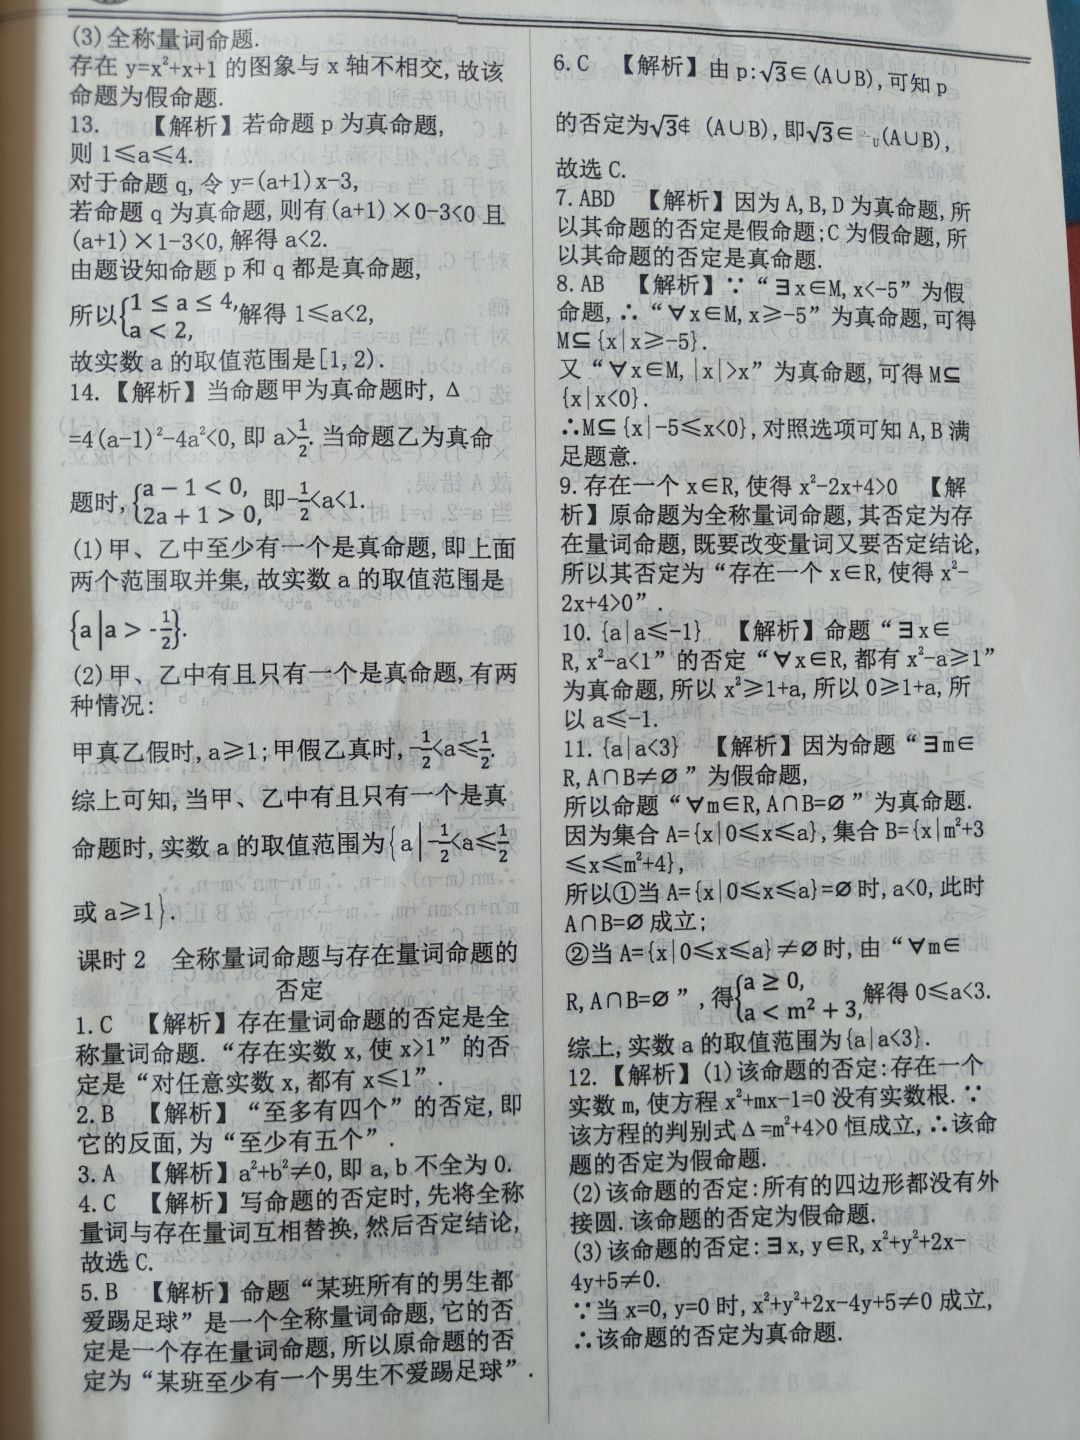 (3)全称量词命题.
存在 y=x²+x+1 的图象与 x 轴不相交,故该
命题为假命题.
13. 【解析】若命题 p 为真命题,
则 1≤a≤4.
对于命题 q,令 y=(a+1)x-3,
若命题 q 为真命题,则有(a+1)×0-3<0 且
(a+1)×1-3<0,解得 a<2.
由题设知命题 p 和 q 都是真命题,
所以{1 ≤ a ≤ 4, a < 2, 解得 1≤a<2,
故实数 a 的取值范围是[1, 2).
14. 【解析】当命题甲为真命题时, Δ
=4(a-1)²-4a²<0,即 a>1/2. 当命题乙为真命
题时,{a − 1 < 0, 2a + 1 > 0, 即-1/2<a<1.
(1)甲、乙中至少有一个是真命题,即上面
两个范围取并集,故实数 a 的取值范围是
{a|a > -1/2}.
(2)甲、乙中有且只有一个是真命题,有两
种情况:
甲真乙假时,a≥1;甲假乙真时,-1/2<a≤1/2.
综上可知,当甲、乙中有且只有一个是真
命题时,实数 a 的取值范围为{a|-1/2<a≤1/2
或 a≥1}.
课时 2 全称量词命题与存在量词命题的
否定
1.C 【解析】存在量词命题的否定是全
称量词命题.“存在实数 x,使 x>1”的否
定是“对任意实数 x,都有 x≤1”.
2.B 【解析】“至多有四个”的否定,即
它的反面,为“至少有五个”.
3.A 【解析】a²+b²≠0,即 a,b 不全为 0.
4.C 【解析】写命题的否定时,先将全称
量词与存在量词互相替换,然后否定结论,
故选 C.
5.B 【解析】命题“某班所有的男生都
爱踢足球”是一个全称量词命题,它的否
定是一个存在量词命题,所以原命题的否
定为“某班至少有一个男生不爱踢足球”.
6.C 【解析】由 p:√3∈(A∪B),可知 p
的否定为√3∉ (A∪B),即√3∈ U(A∪B),
故选 C.
7.ABD 【解析】因为 A,B,D 为真命题,所
以其命题的否定是假命题;C 为假命题,所
以其命题的否定是真命题.
8.AB 【解析】∵“∃x∈M,x<-5”为假
命题,∴“∀x∈M,x≥-5”为真命题,可得
M⊆{x|x≥-5}.
又“∀x∈M,|x|>x”为真命题,可得 M⊆
{x|x<0}.
∴M⊆{x|-5≤x<0},对照选项可知 A,B 满
足题意.
9.存在一个 x∈R,使得 x²-2x+4>0 【解
析】原命题为全称量词命题,其否定为存
在量词命题,既要改变量词又要否定结论,
所以其否定为“存在一个 x∈R,使得 x²-
2x+4>0”.
10. {a|a≤-1} 【解析】命题“∃x∈
R,x²-a<1”的否定“∀x∈R,都有 x²-a≥1”
为真命题,所以 x²≥1+a,所以 0≥1+a,所
以 a≤-1.
11. {a|a<3} 【解析】因为命题“∃m∈
R,A∩B≠∅”为假命题,
所以命题“∀m∈R,A∩B=∅”为真命题.
因为集合 A={x|0≤x≤a},集合 B={x|m²+3
≤x≤m²+4},
所以①当 A={x|0≤x≤a}=∅时,a<0,此时
A∩B=∅成立;
②当 A={x|0≤x≤a}≠∅时,由“∀m∈
R,A∩B=∅”,得{a ≥ 0, a < m² + 3, 解得 0≤a<3.
综上,实数 a 的取值范围为{a|a<3}.
12. 【解析】(1)该命题的否定:存在一个
实数 m,使方程 x²+mx-1=0 没有实数根.∵
该方程的判别式 Δ=m²+4>0 恒成立,∴该命
题的否定为假命题.
(2)该命题的否定:所有的四边形都没有外
接圆.该命题的否定为假命题.
(3)该命题的否定:∃x,y∈R,x²+y²+2x-
4y+5≠0.
∵当 x=0,y=0 时,x²+y²+2x-4y+5≠0 成立,
∴该命题的否定为真命题.